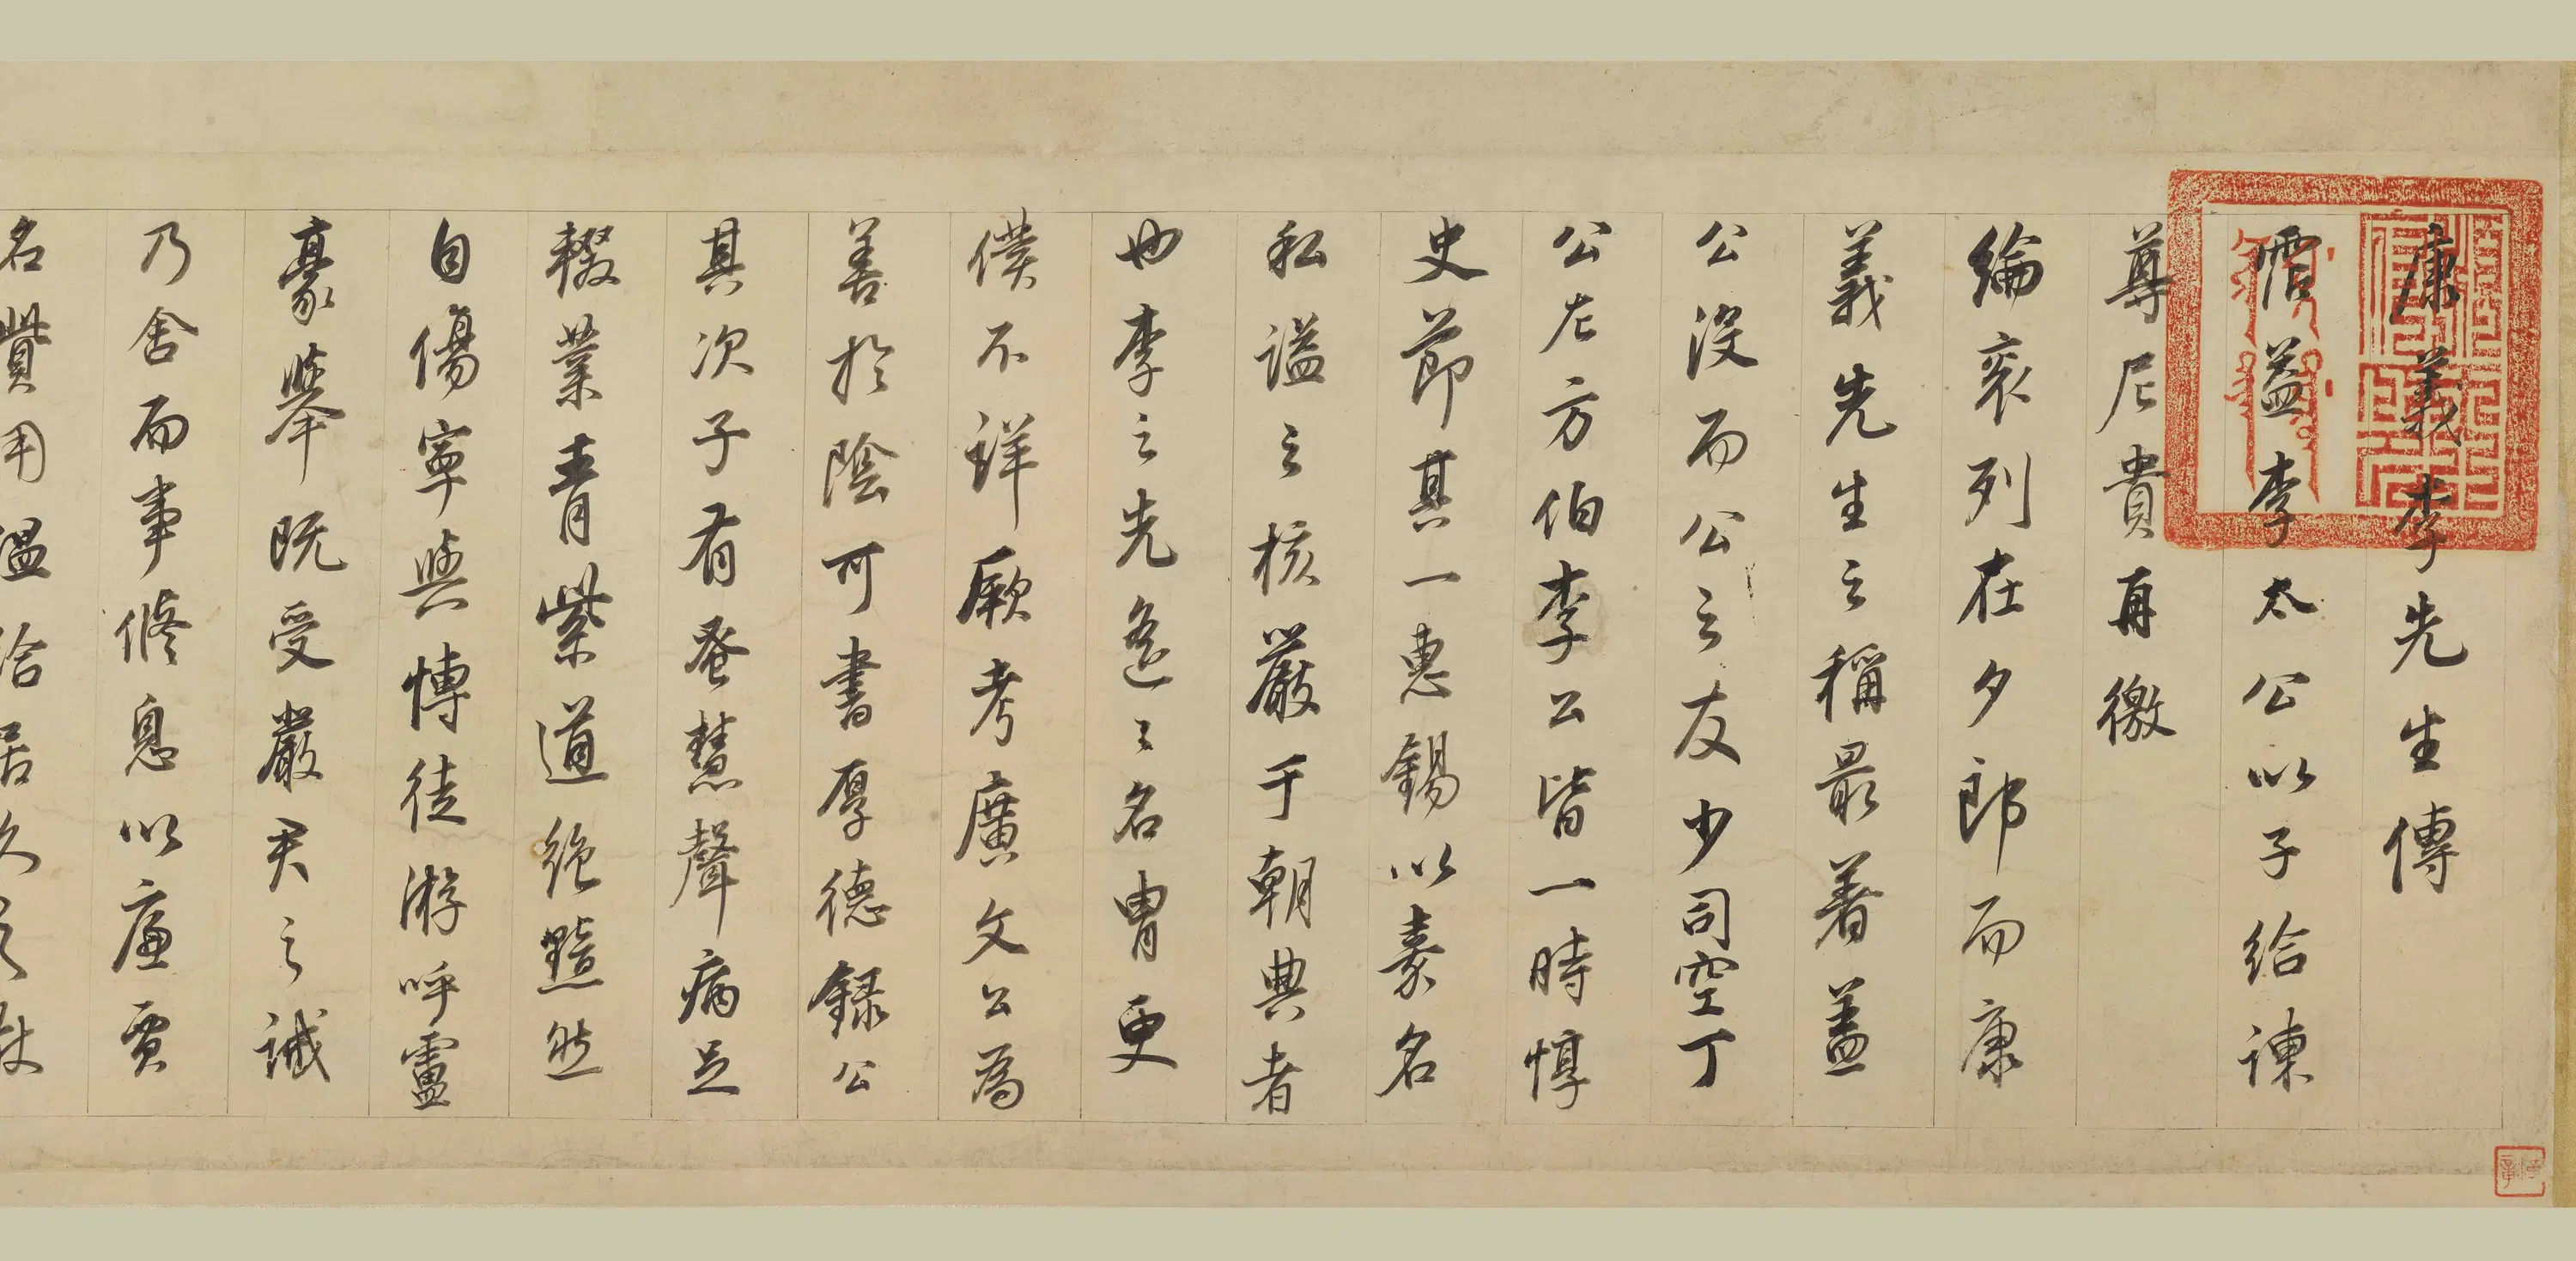 康義李先生傳
霑益李太公以子給諫
尊尼貴再徼
綸衮列在夕郎而康
義先生之稱最著蓋
公沒而公之友少司空丁
公左方伯李公皆一時惇
史節其一惠錫以素名
私謚之核嚴于朝典者
也李之先逸之名胄更
僕不詳厥考廣文公為
善於陰可書厚德錄公
其次子有蚤慧聲病足
輟業青紫道絕黯然
自傷寧與博徒游呼盧
豪舉既受嚴君之誡
乃舍而事脩息以廉賈
名貲用溫洽居久之